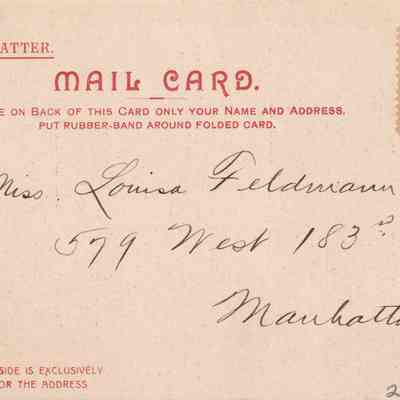 ATTER.
MAIL CARD.
E ON BACK OF THIS CARD ONLY YOUR NAME AND ADDRESS.
PUT RUBBER-BAND AROUND FOLDED CARD.
Miss. Louisa Feldmann
579 West 183rd
Manhatta
SIDE IS EXCLUSIVELY
OR THE ADDRESS
2